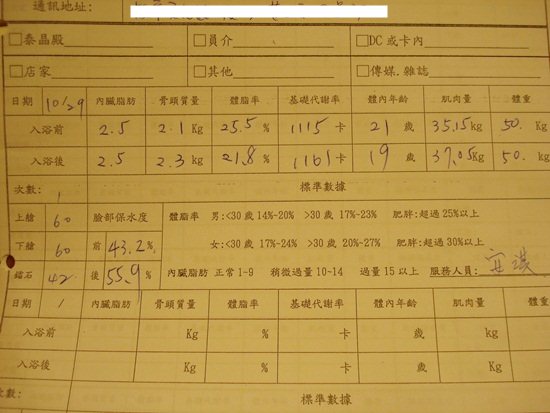 通訊地址:
□泰晶殿 □員介 □DC 或卡內
□店家 □其他 □傳媒.雜誌
日期 10/29 內臟脂肪 骨頭質量 體脂率 基礎代謝率 體內年齡 肌肉量 體重
入浴前 2.5 2.1 Kg 25.5 % 1115 卡 21 歲 35.15 Kg 50. Kg
入浴後 2.5 2.3 Kg 21.8 % 1161 卡 19 歲 37.05 Kg 50. kg
次數: 1 標準數據
上艙 60 臉部保水度 體脂率 男:<30 歲 14%~20% >30 歲 17%~23% 肥胖:超過 25%以上
下艙 60 前 43.2% 女:<30 歲 17%~24% >30 歲 20%~27% 肥胖:超過 30%以上
鑽石 42 後 55.9% 內臟脂肪 正常 1-9 稍微過量 10-14 過量 15 以上 服務人員:
日期 / 內臟脂肪 骨頭質量 體脂率 基礎代謝率 體內年齡 肌肉量 體重
入浴前 Kg % 卡 歲 kg
入浴後 Kg % 卡 歲 Kg
次數: 標準數據